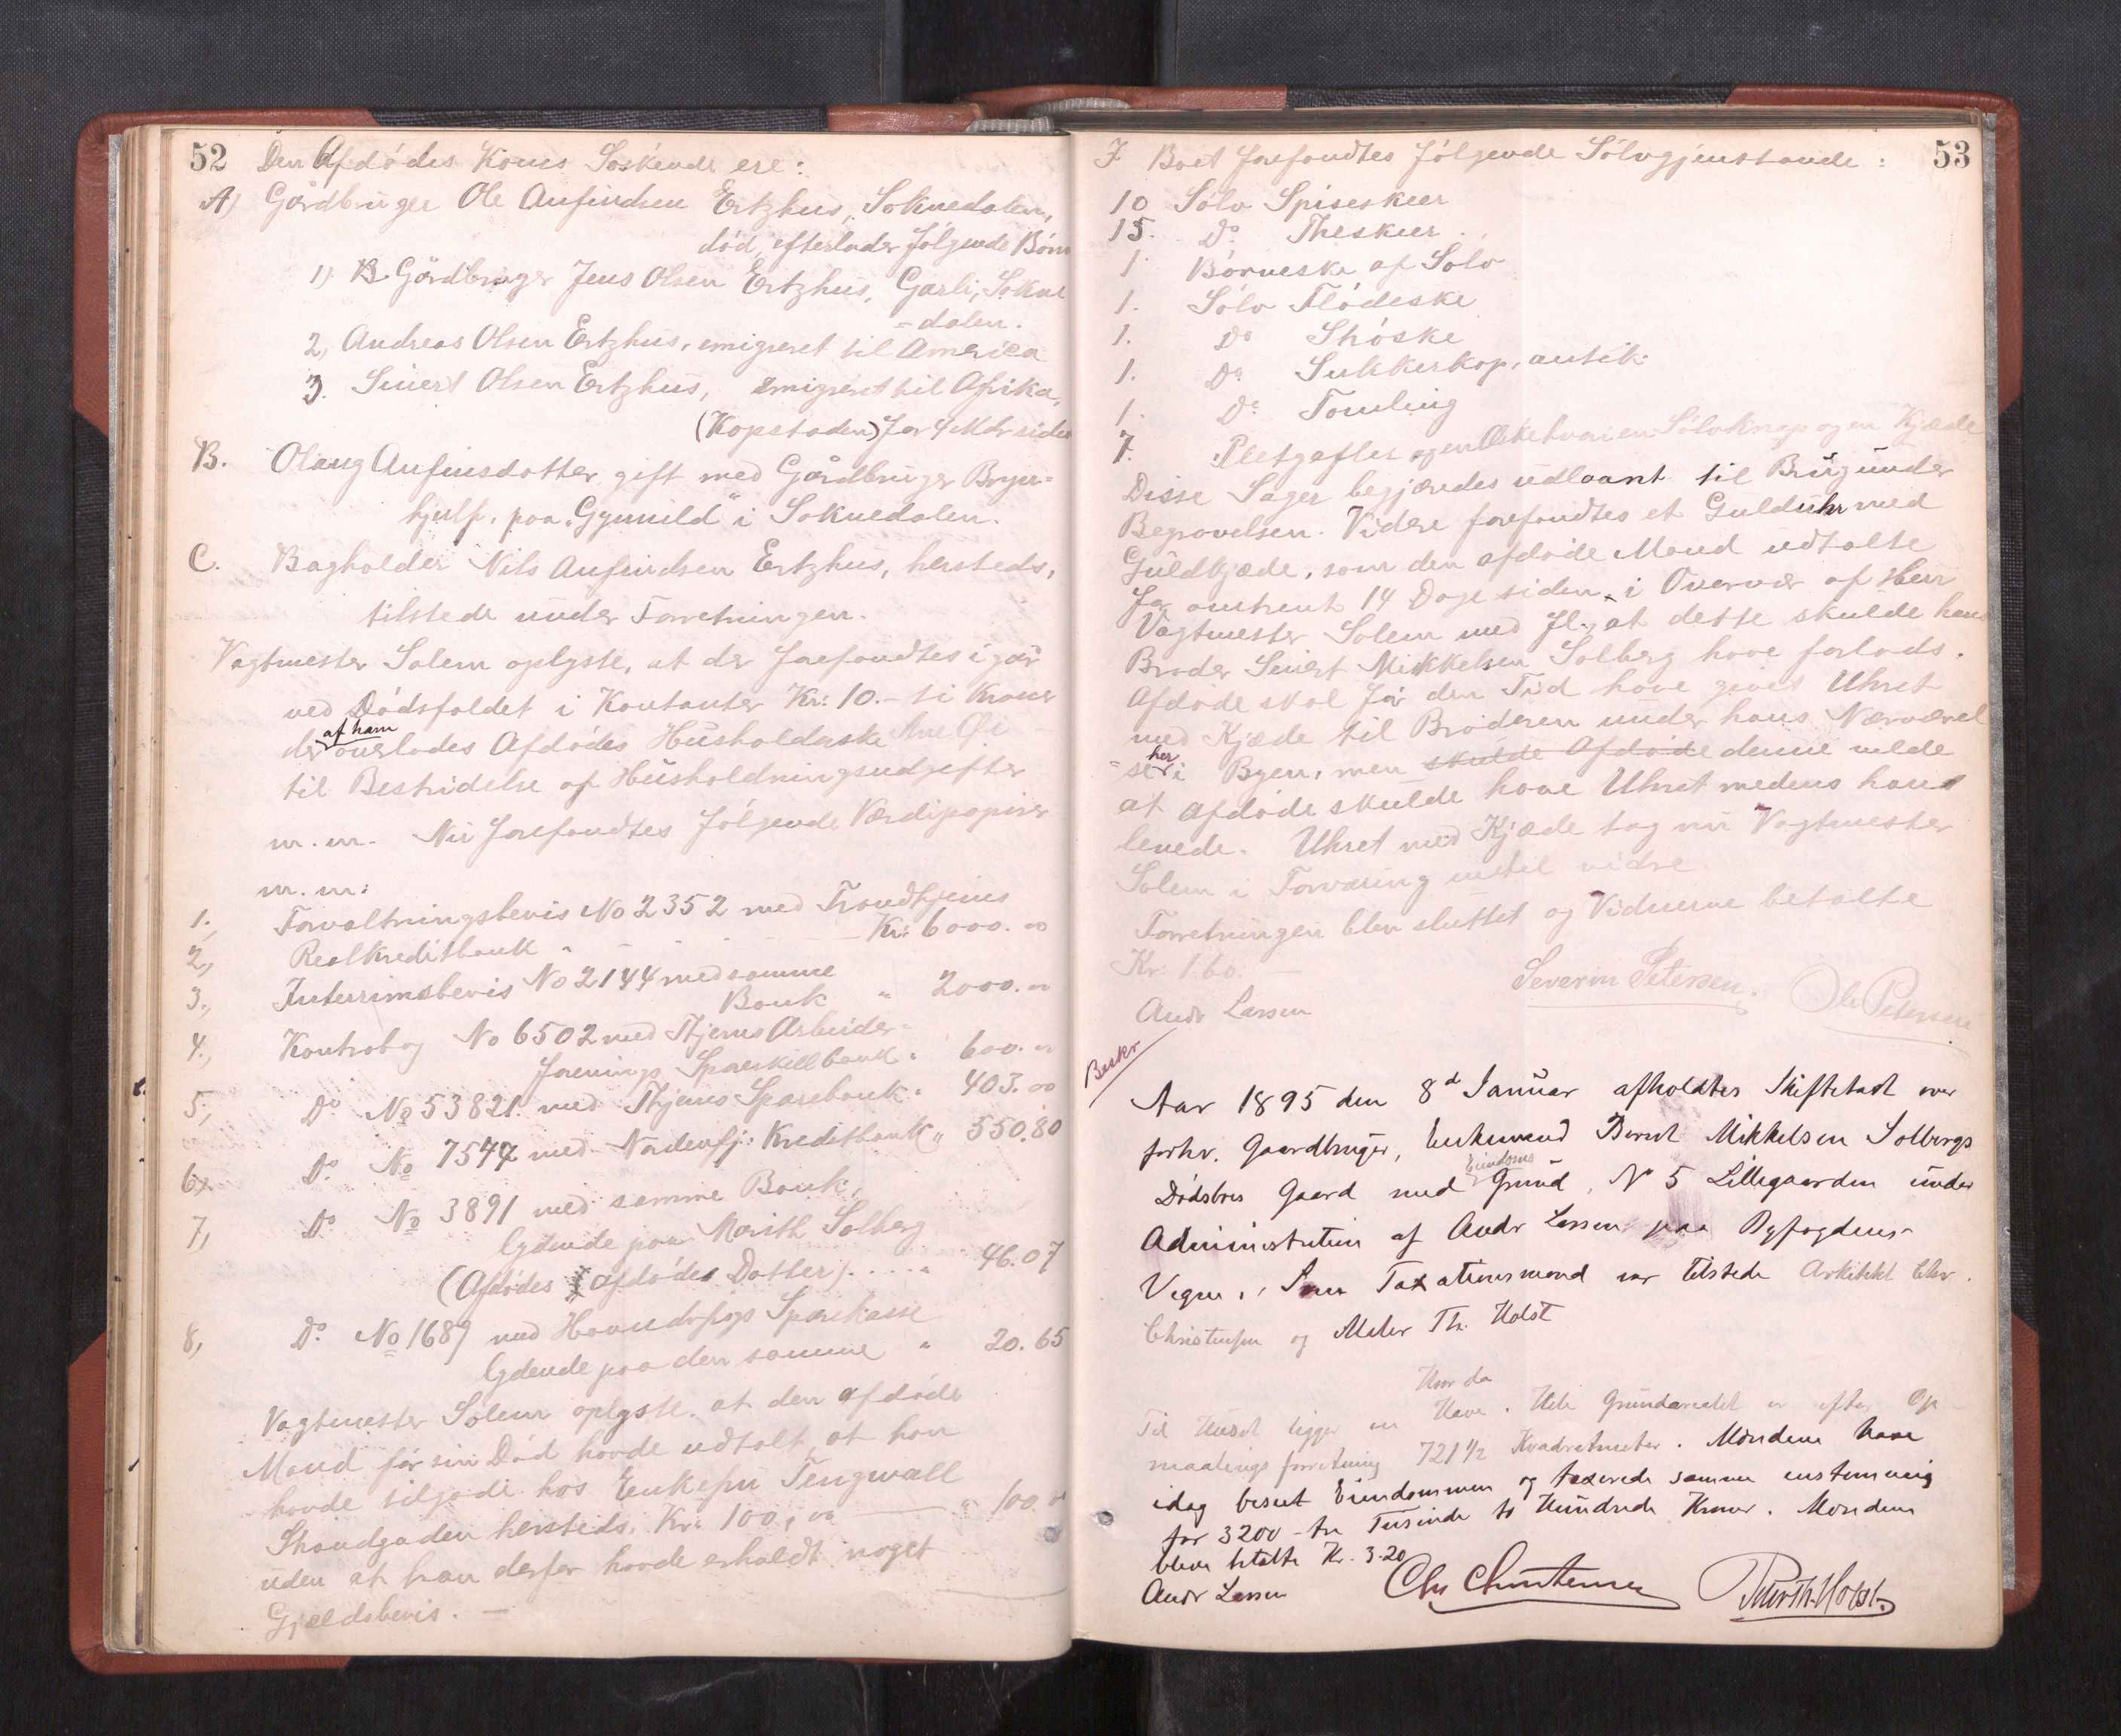 52 Den Afdödes Kones Söskende ere:
A) Gårdbruger Ole Anfindsen Ertzhus, Soknedalen,
död, efterlader følgende Börn
1) Gårdbruger Jens Olsen Ertzhus, Garli, Sokne
=dalen.
2, Andreas Olsen Ertzhus, emigreret til America
3. Sivert Olsen Ertzhus, emigreret til Afrika,
(Kapstaden) for 4 Mdr siden
B. Olaug Anfinsdotter gift med Gårdbruger Bryn=
hjulf, paa "Gynnild" i Soknedalen.
C. Bagholder Nils Anfindsen Ertzhus, hersteds,
tilstede under Forretningen.
Vagtmester Solem oplyste, at der forefandtes igår
ved Dödsfaldet i Kontanter Kr: 10.- ti Kroner
af ham
der overlodes Afdödes Husholderske Ane Øi
til Bestridelse af Husholdningsudgifter
m.m. Nu forefandtes følgende Værdipapirer
m.m:
1. Forvaltningsbevis No 2352 med Trondhjems
2, Realkreditbank - Kr: 6000.00
3., Interrimsbevis No 2144 med samme
Bank " 2000.00
4., Kontrabog No 6502 med Thjems Arbeider-
forenings Spareskillbank " 600.00
5, Do No 53821. med Thjems Sparebank " 403.00
6, Do No 7547 med Nordenfj. Kreditbank " 550.80
7, Do No 3891 med samme Bank,
lydende paa Marith Solberg
(Afdødes afdødes Datter) . . . . " 46.07
8, Do No 1689 med Sparekasse
lydende paa den samme " 20.65
Vagtmester Solem oplyste, at den afdøde
Mand før sin Död havde udtalt at han
havde tilgode hos Enkefru Tengwall
Strandgaden hersteds. Kr: 100,00 " 100.00
uden at han derfor havde erholdt noget
Gjældsbevis. -
53
I Boet forefandtes følgende Sölvgjenstande:
10 Sölv Spiseskeer
15. Do Theskeer
1. Börneske af Sölv
1. Sölv Flödeske
1. Do Ströske
1. Do Sukkerkop, antik
1. Do Tomling
7. Pletgafler og en Æske hvori en Sölvknap og en Kjæde
Disse Sager begjæredes udlaant til Brug under
Begravelsen. Videre forefandtes et Gulduhr med
Guldkjæde, som den afdøde Mand udtalte
for omtrent 14 Dage siden, i Overvær af Herr
Vagtmester Solem med Fl., at dette skulde hans
Broder Sivert Mikkelsen Solberg have forlods.
Afdøde skal før den Tid have givet Uhret
med Kjæde til Broderen under hans Nærværel
her
=se i Byen, men skulde Afdøde denne vilde
at afdøde skulde have Uhret medens han
levede. Uhret med Kjæde tog nu Vagtmester
Solem i Forvaring indtil vidre
Forretningen blev sluttet og Vidnerne betalte
Kr. 1.60. -
Andr Larsen Severin Petersen. Ole Petersen
Beskr
Aar 1895 den 8d Januar afholdtes Skiftetaxt over
forhv. Gaardbruger, Enkemand Bernt Mikkelsen Solbergs
Eiendoms
Dødsbos Gaard med Grund, No 5 Lillegaarden under
Administration af Andr Larsen paa Byfogdens
Vegne. Som Taxationsmænd var tilstede Arkitekt Chr.
Christensen og Maler Th. Holst
Til Huset ligger en Have. Hele Grundarealet er efter Op-
maalingsforretning 721 1/2 Kvadratmeter. Mændene have
idag beseet Eiendommen og taxerede samme enstemmig
for 3200 - tre Tusinde to Hundrede Kroner. Mændene
bleve betalte Kr. 3.20
Andr Larsen Chr Christensen Peter Th. Holst.